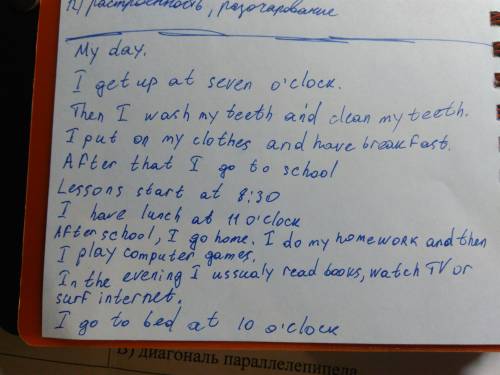 п) расстроенность, разочарование
My day.
I get up at seven o'clock.
Then I wash my teeth and clean my teeth.
I put on my clothes and have breakfast.
After that I go to school
Lessons start at 8:30
I have lunch at 11 o'clock
After school, I go home. I do my homework and then
I play computer games.
In the evening I ussualy read books, watch TV or
surf internet.
I go to bed at 10 o'clock
В) диагональ параллелепипеда